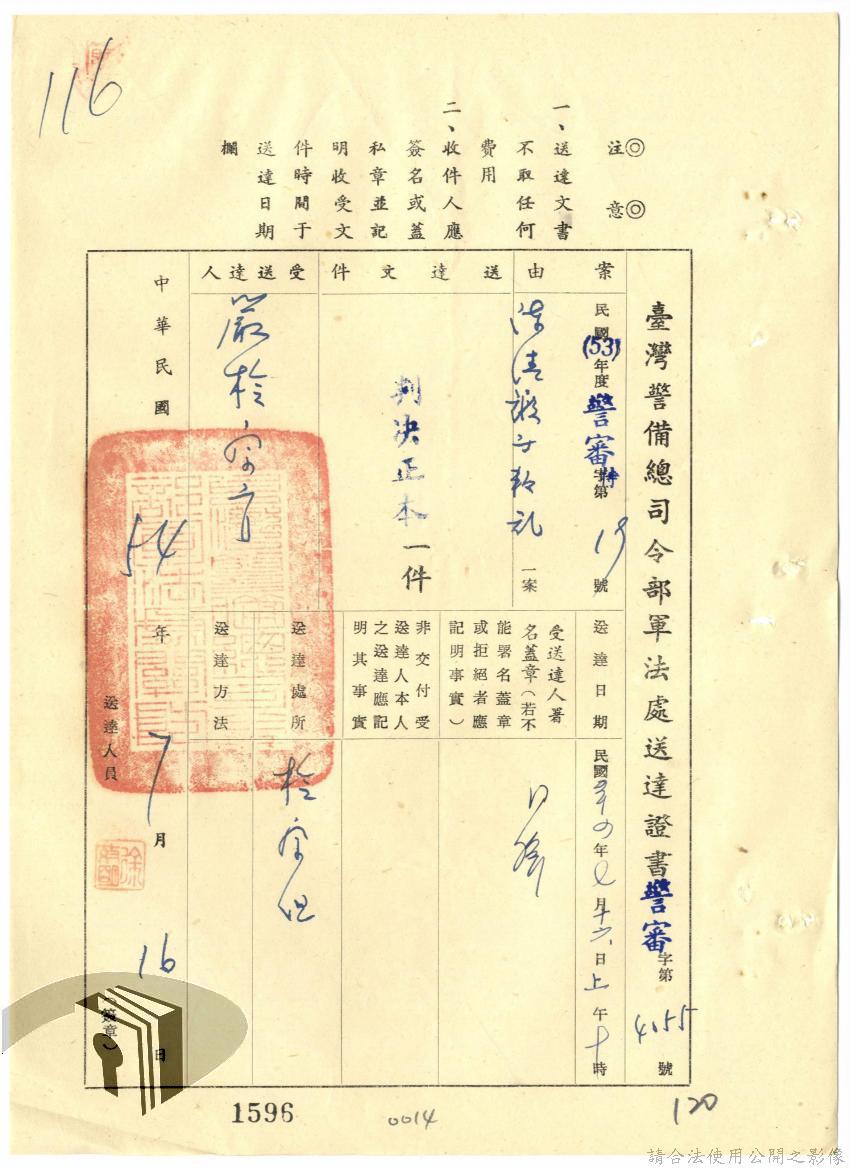 116
◎注意◎
一、送達文書
不取任何
費用
二、收件人應
簽名或蓋
私章並記
明收受文
件時間于
送達日期
欄
臺灣警備總司令部軍法處送達證書警審字第4155號
案由
民國(53)年度警審特字第19號
一案
送達文件
判決正本一件
受送達人
嚴檢察官
送達日期
民國五四年七月十六日上午十時
受送達人署
名蓋章(若不
能署名蓋章
或拒絕者應
記明事實)
非交付受
送達人本人
之送達應記
明其事實
送達處所
送達方法
中華民國54年7月16日
送達人員
(簽章)
1596
0014
120
請合法使用公開之影像